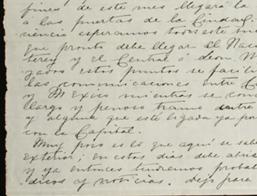 fines de este mes llegará la
a las puertas de la Ciudad.
ciencia esperamos todo este m
que pronto debe llegar el Nac
terey y el Central á Leon. M
gados estos puntos se facili
las comunicaciones entre C
y Mexico mientras se com
llarga y penoso tramo entre
y alguna que esté ligada ya po
con la Capital.
Muy poco es lo que aqui se sabe
exterior; en estos dias debe abrirse
y ya entonces tendremos proba
dicos y noticias. Dejo para